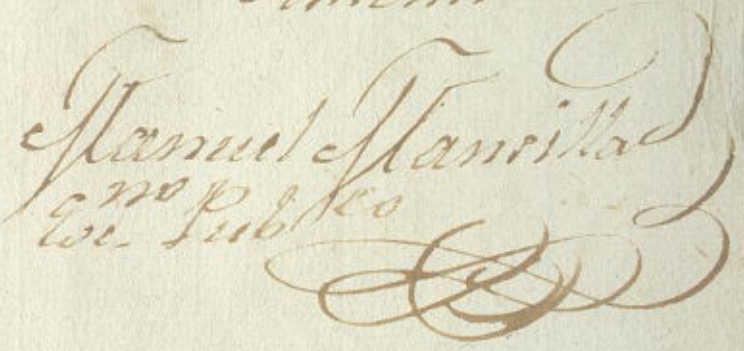 Manuel Mansilla
Esc.no Pub.co